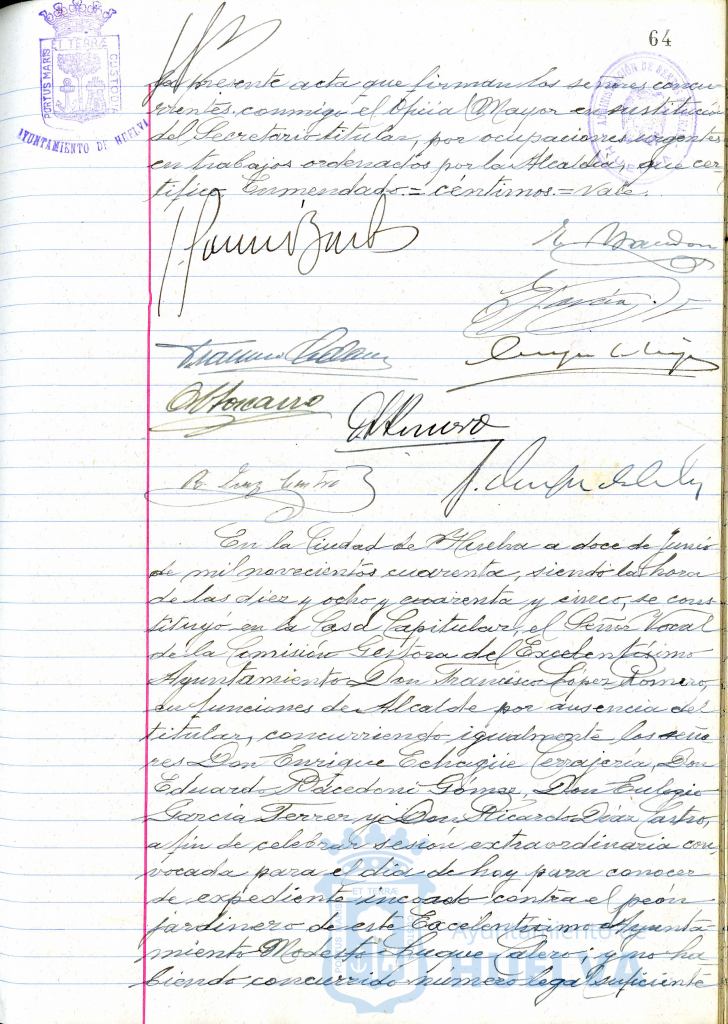 64
PORTUS MARIS ET TERRÆ CUSTODIA
AYUNTAMIENTO DE HUELVA
la presente acta que firman los señores concu-
rrentes conmigo el Oficial Mayor en sustitución
del Secretario titular, por ocupaciones urgentes
en trabajos ordenados por la Alcaldía, que cer-
tifico. Enmendado = céntimos = Vale.
E. García
R. Díaz Castro
En la Ciudad de Huelva a doce de Junio
de mil novecientos cuarenta, siendo la hora
de las diez y ocho y cuarenta y cinco, se cons-
tituyó en la Casa Capitular, el Señor Vocal
de la Comisión Gestora del Excelentísimo
Ayuntamiento Don Francisco López Romero,
en funciones de Alcalde por ausencia del
titular, concurriendo igualmente los seño-
res Don Enrique Echagüe Cerrajería, Don
Eduardo Gómez, Don Eulogio
García Ferrer y Don Ricardo Díaz Castro,
a fin de celebrar sesión extraordinaria con-
vocada para el día de hoy para conocer
de expediente incoado contra el peón
jardinero de este Excelentísimo Ayunta-
miento Modesto Luque Calero; y no ha-
biendo concurrido número legal suficiente
Ayuntamiento de
HUELVA